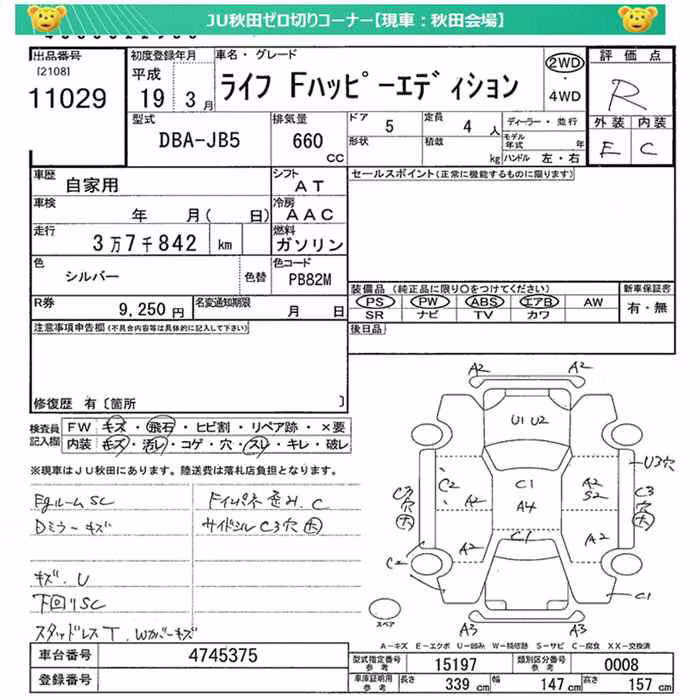 JU秋田ゼロ切りコーナー【現車：秋田会場】
出品番号 初度登録年月 車名・グレード 評価点
[2108] 11029 平成 19 3月 ライフ Fハッピーエディション 2WD ・ 4WD R
型式 排気量 ドア 5 定員 4 人 ディーラー・並行 外装 内装
DBA-JB5 660 CC 形状 積載 kg モデル年式 年 ハンドル 左・右 E C
車歴 自家用 シフト AT セールスポイント(正常に機能するものに限ります)
車検 年 月( 日) 冷房 AAC
走行 3万7千842 km 燃料 ガソリン
色 シルバー 色替 色コード PB82M
装備品 (純正品に限り○をつけてください) 新車保証書
PS PW ABS エアB AW 有・無
SR ナビ TV カワ
R券 9,250 円 名変通知期限 月 日
後日品
注意事項申告欄(不具合内容等は具体的に記入して下さい)
修復歴 有〔箇所 〕
検査員記入欄 FW キズ・飛石・ヒビ割・リペア跡・×要
内装 キズ・汚レ・コゲ・穴・スレ・キレ・破レ
※現車はJU秋田にあります。陸送費は落札店負担となります。
Egルーム SC
Dミラーキズ サイドシル C3穴 大
キズ.U
下回りSC
スタッドレスT.Wカバーキズ
A2 A2
U1 U2
U3穴
C2 A2 C1 A4 A2 S2 C3 穴 大
C3 穴 大
A2 C1 A2
C2 C1
A3 A3
スペア
A－キズ E－エクボ U－凹み W－補修跡 S－サビ C－腐食 XX－交換済
車台番号 4745375
登録番号
型式指定番号 参考 15197 類別区分番号 参考 0008
車庫証明用 参考 長さ 339 cm 幅 147 cm 高さ 157 cm